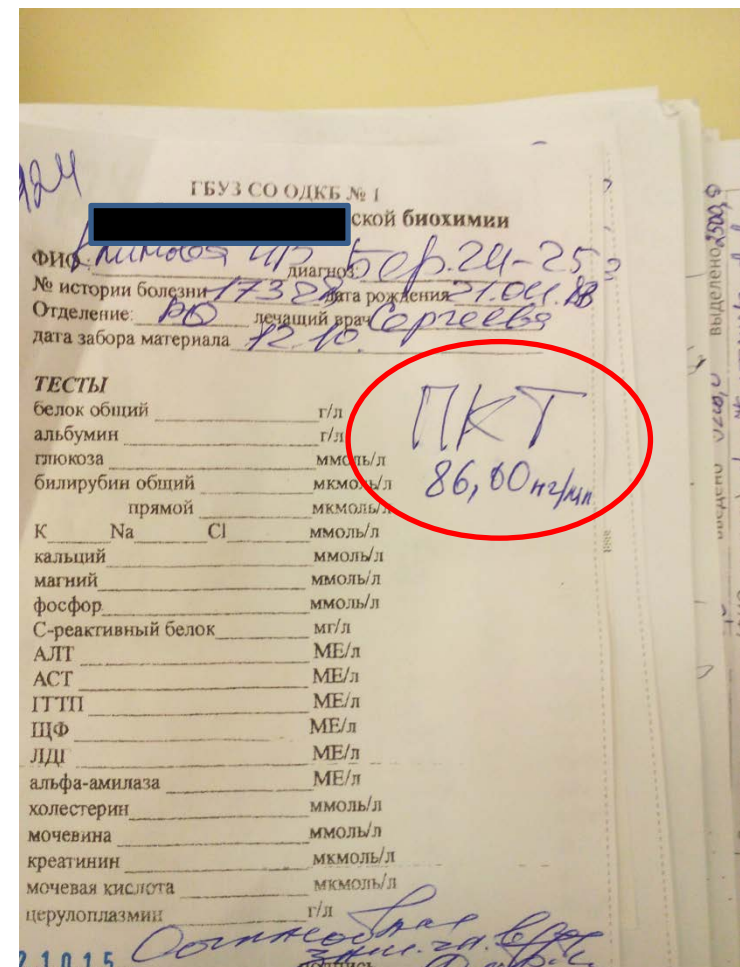 ГБУЗ СО ОДКБ № 1
ской биохимии
ФИО: диагноз: Бер. 24-25
№ истории болезни дата рождения 21.04.
Отделение: РО лечащий врач Сергеева
дата забора материала 12.10.
ТЕСТЫ
белок общий г/л
альбумин г/л
глюкоза ммоль/л
билирубин общий мкмоль/л
прямой мкмоль/л
К Na Cl ммоль/л
кальций ммоль/л
магний ммоль/л
фосфор ммоль/л
С-реактивный белок мг/л
АЛТ МЕ/л
АСТ МЕ/л
ГГТП МЕ/л
ЩФ МЕ/л
ЛДГ МЕ/л
альфа-амилаза МЕ/л
холестерин ммоль/л
мочевина ммоль/л
креатинин мкмоль/л
мочевая кислота мкмоль/л
церулоплазмин г/л
ПКТ
86,00 нг/мл
21015
подпись
выделено 2500,0
введено